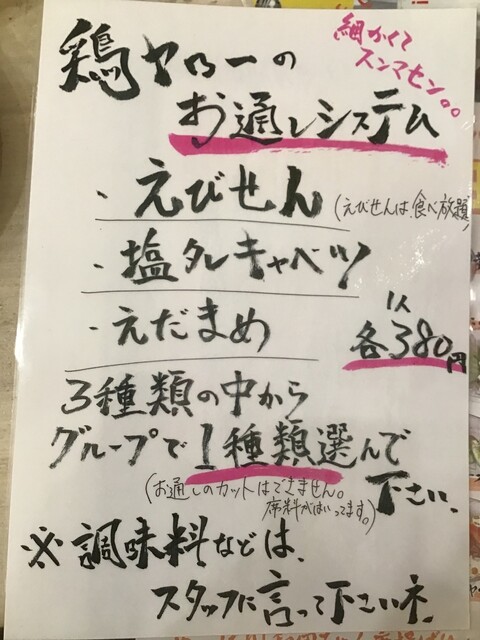 細かくて
スンマセン。。
鶏ヤローの
お通しシステム
・えびせん
(えびせんは食べ放題)
・塩タレキャベツ
・えだまめ
1人
各380円
3種類の中から
グループで1種類選んで
下さい。
(お通しのカットはできません。
席料がはいってます。)
※調味料などは、
スタッフに言って下さいネ。